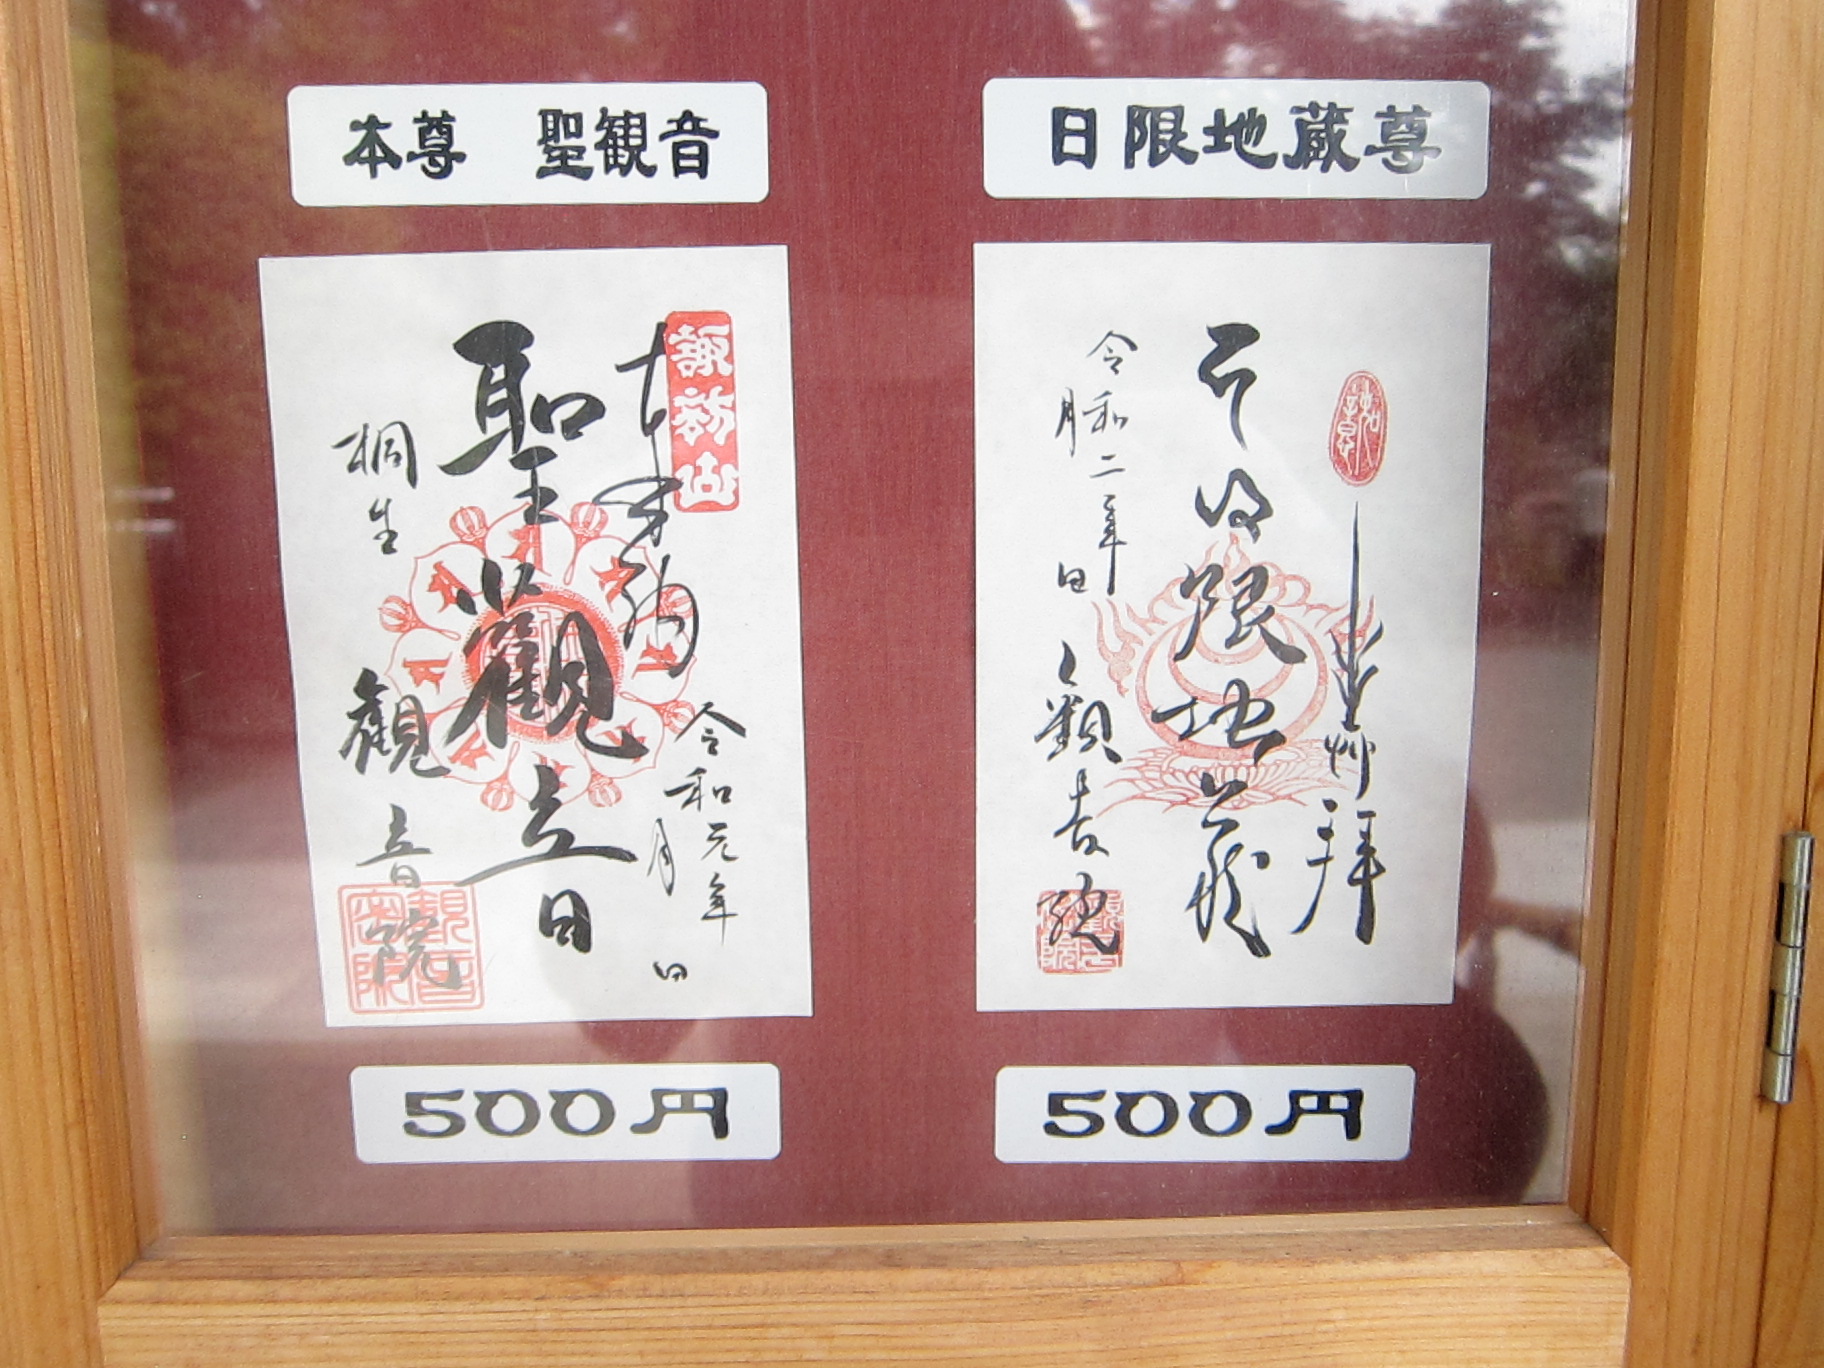 本尊　聖観音
諏訪山
奉拝
聖観音
令和元年
月　日
桐生
観音院
500円
日限地蔵尊
拝
日限地蔵
令和二年
月　日
観音院
500円